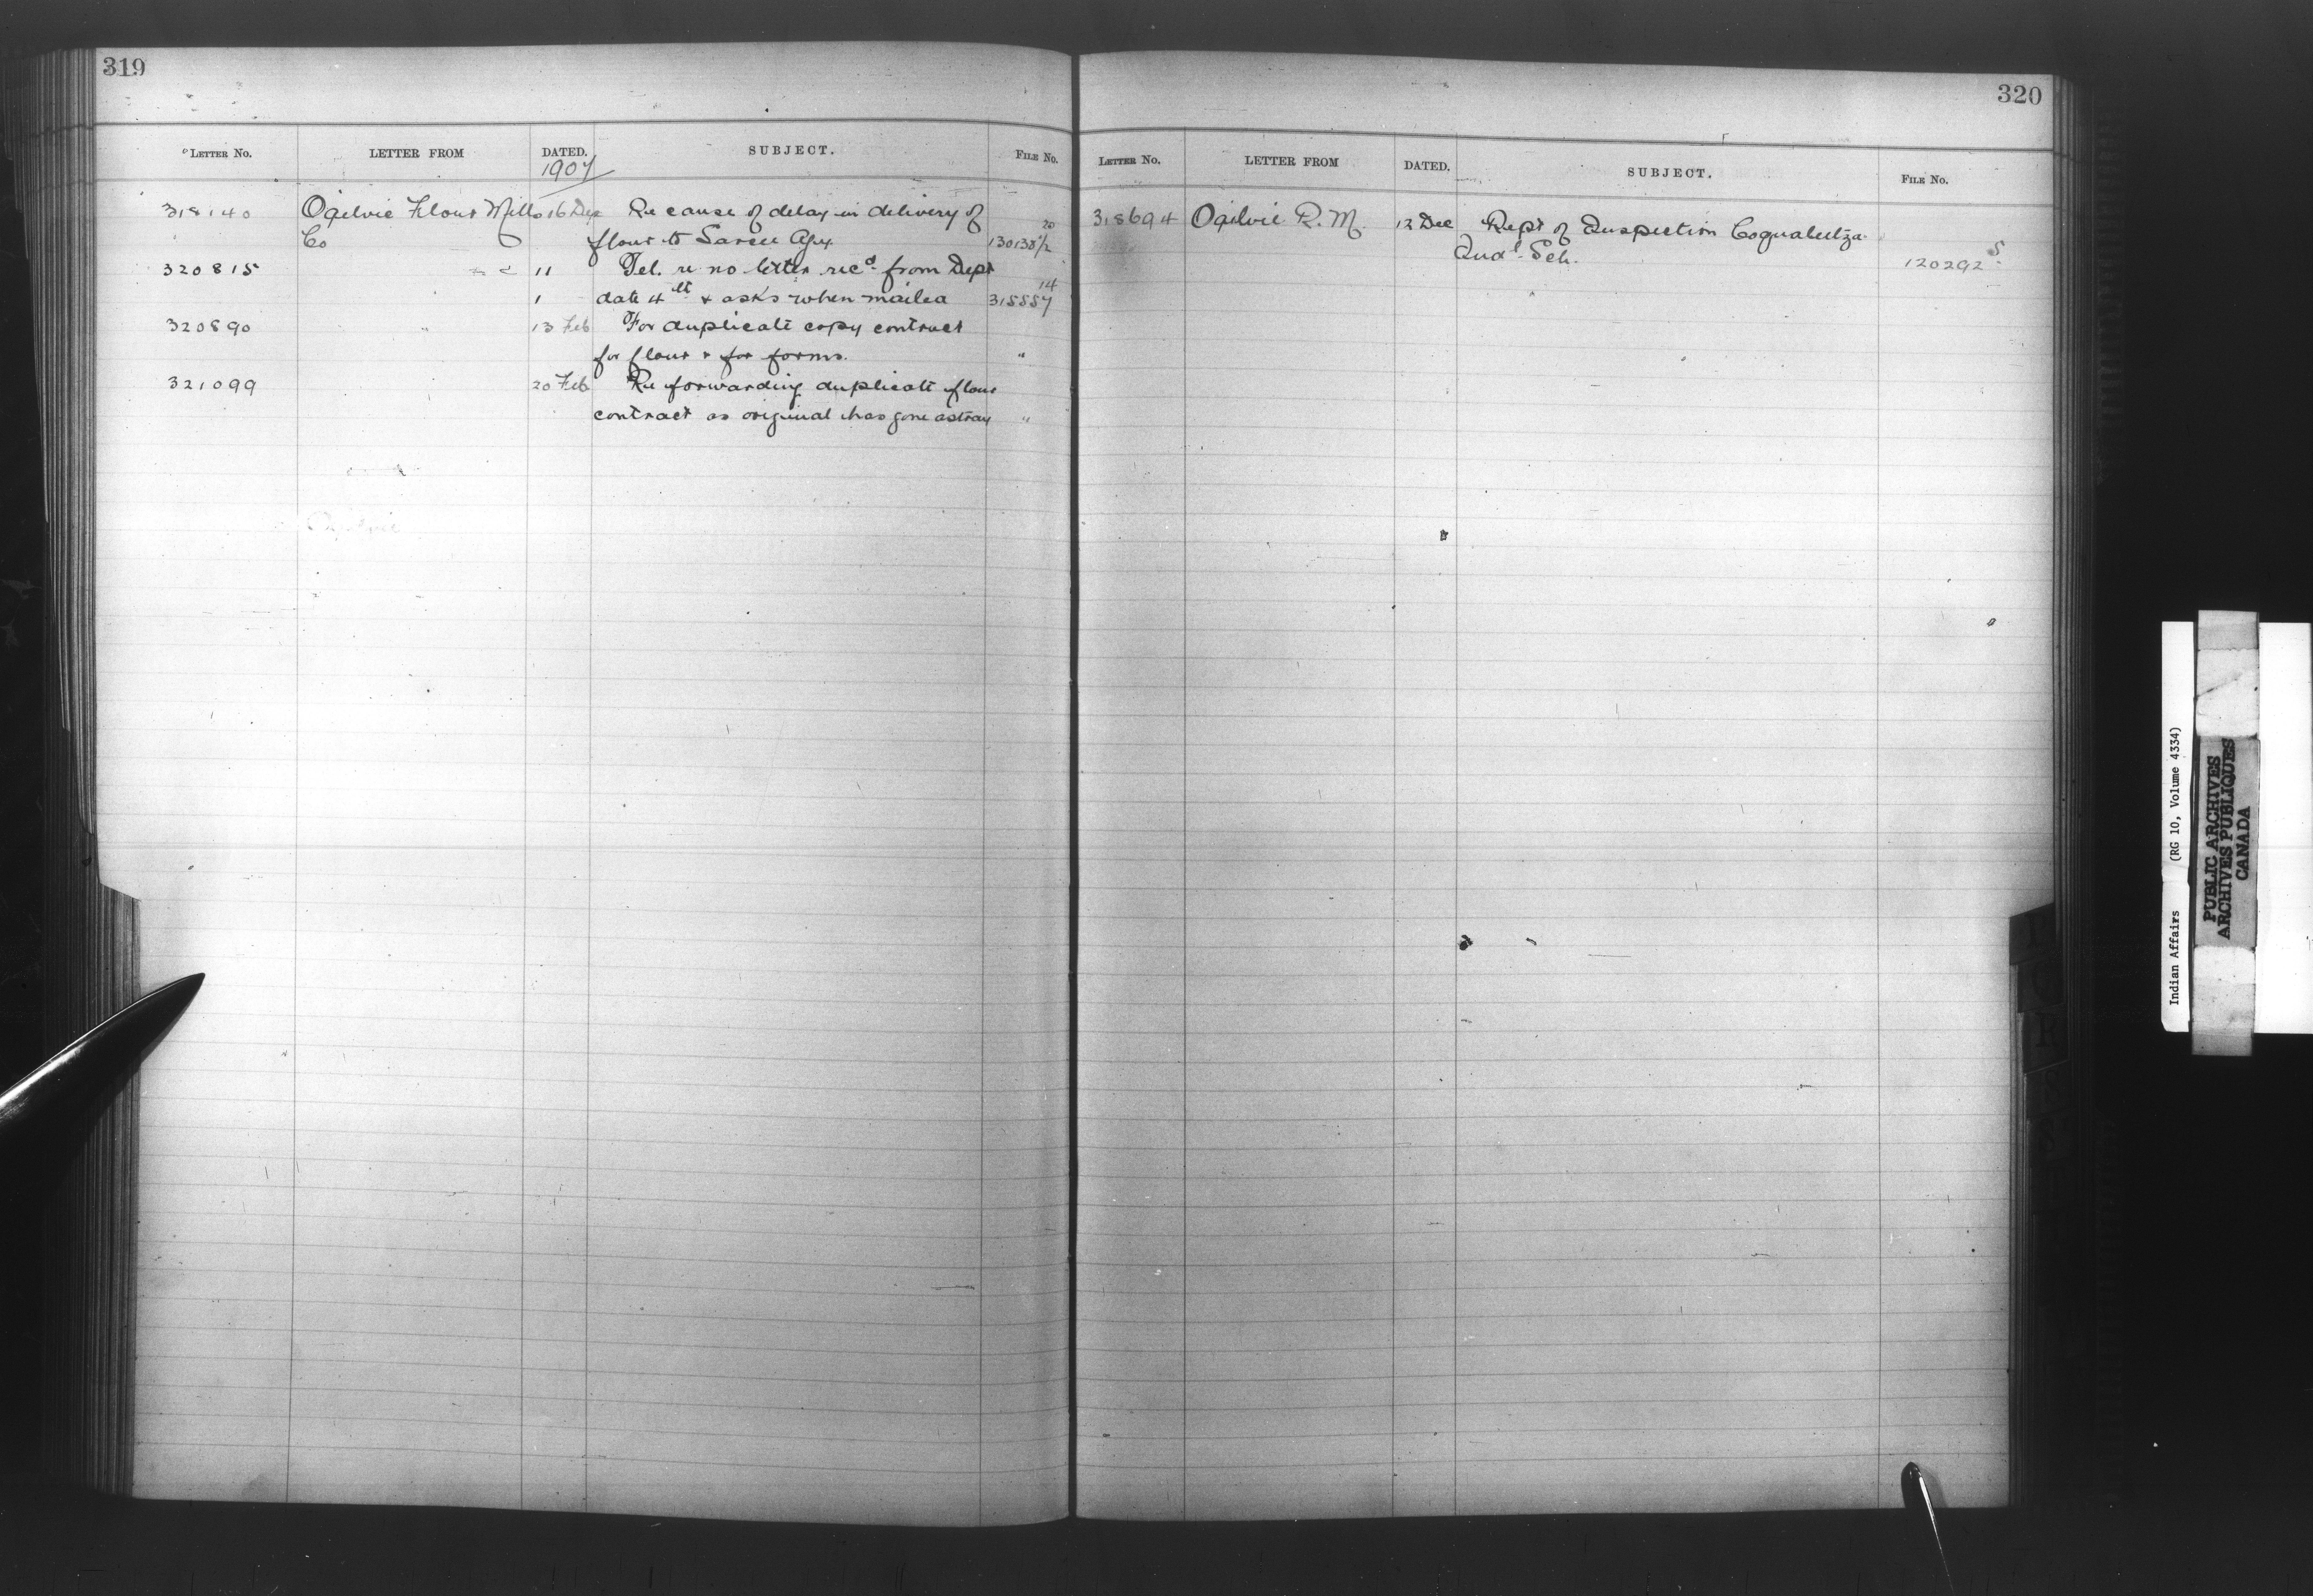 319
LETTER No. LETTER FROM DATED. SUBJECT. FILE No.
1907
318140 Ogilvie Flour Mills 16 Re cause of delay in delivery of 20
Co flour to Sarcee Agy. 130138 1/2
320815 11 Tel. re no letter recd. from Dept 14
date 4th & asks when mailed 315887
320890 " 13 Feb For duplicate copy contract
for flour & for forms. "
321099 20 Feb Re forwarding duplicate flour
contract as original has gone astray "
Ogilvie
320
LETTER No. LETTER FROM DATED. SUBJECT. FILE No.
318694 Ogilvie R. M. 12 Dec Rept of Inspection Coqualeetza
Indl. Sch. 120292 S
Indian Affairs (RG 10, Volume 4334)
PUBLIC ARCHIVES
ARCHIVES PUBLIQUES
CANADA